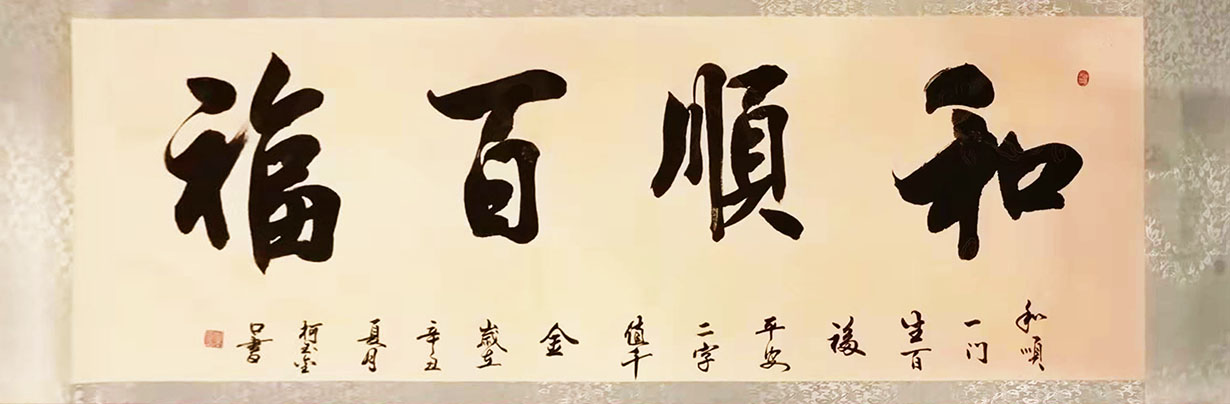 和順百福
和順
一门
生百
福
平安
二字
值千
金
歲在
辛丑
夏月
柯玉金
书